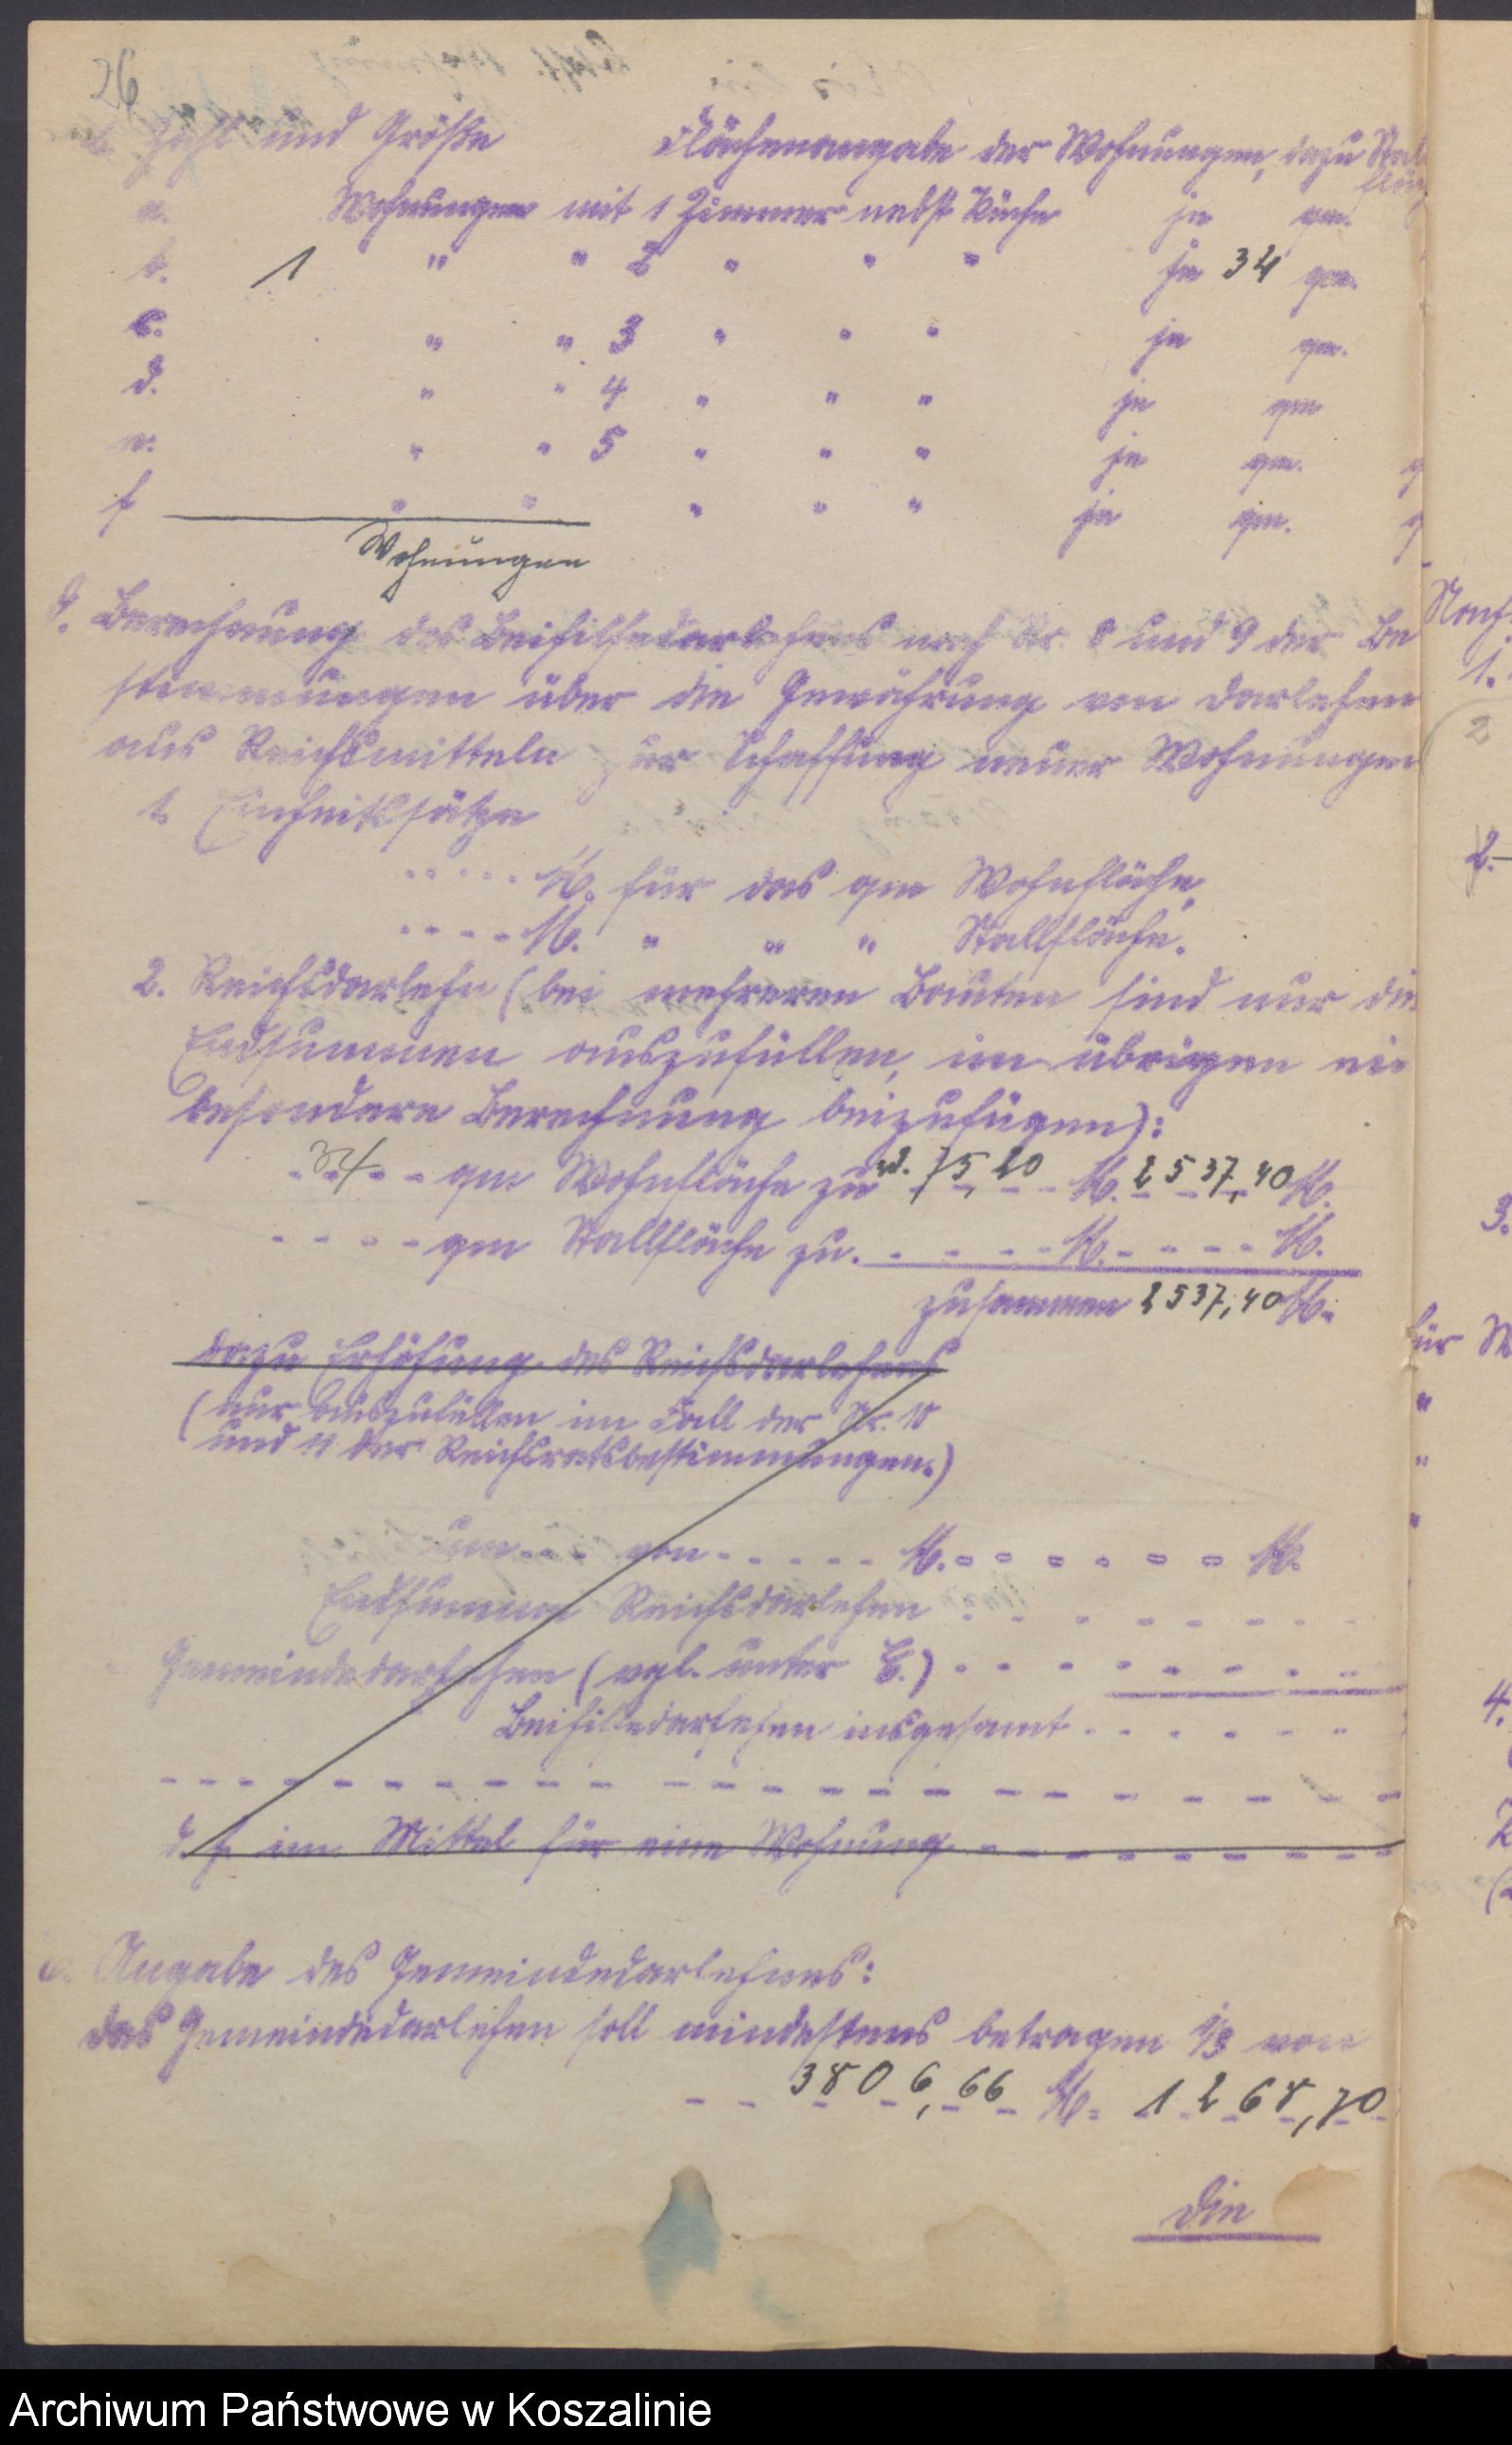 26
Zahl und Größe Flächenangabe der Wohnungen, dazu Stall
a. Wohnungen mit 1 Zimmer nebst Küche je qm.
b. 1 " " 2 " " " je 34 qm.
c. " " 3 " " " je qm.
d. " " 4 " " " je qm
e. " " 5 " " " je qm.
f " " " " " je qm.
Wohnungen
Berechnung des Beihilfedarlehens nach Nr. 8 und 9 der Be
stimmungen über die Gewährung von Darlehen
aus Reichsmitteln zur Schaffung neuer Wohnungen
1. Einheitssätze
. . . . . M. für das qm Wohnfläche,
. . . . M. " " " Stallfläche.
2. Reichsdarlehn (bei mehreren Bauten sind nur die
Endsummen auszufüllen, im übrigen ein
besondere Berechnung beizufügen):
34 qm Wohnfläche zu M. 2537,40 M.
- - - - qm Stallfläche zu. - - - - M. - - - - M.
zusammen 2537,40 M.
dazu Erhöhung des Reichsdarlehens
(nur auszufüllen im Fall der Nr. 10
und 11 der Reichsratsbestimmungen.)
um - - - von - - - - - M. - - - - - - M.
Endsumme Reichsdarlehen - - - - - - - -
Gemeindedarlehen (vgl. unter E.) - - - - - - - - -
Beihilfedarlehen insgesamt - - - - - -
d. h. im Mittel für eine Wohnung - - - - - - - - -
Angabe des Gemeindedarlehnes:
das Gemeindedarlehen soll mindestens betragen 1/3 von
3806,66 M. 1268,70
Die
1.
2
2.
3.
für W
"
"
"
4.
Archiwum Państwowe w Koszalinie